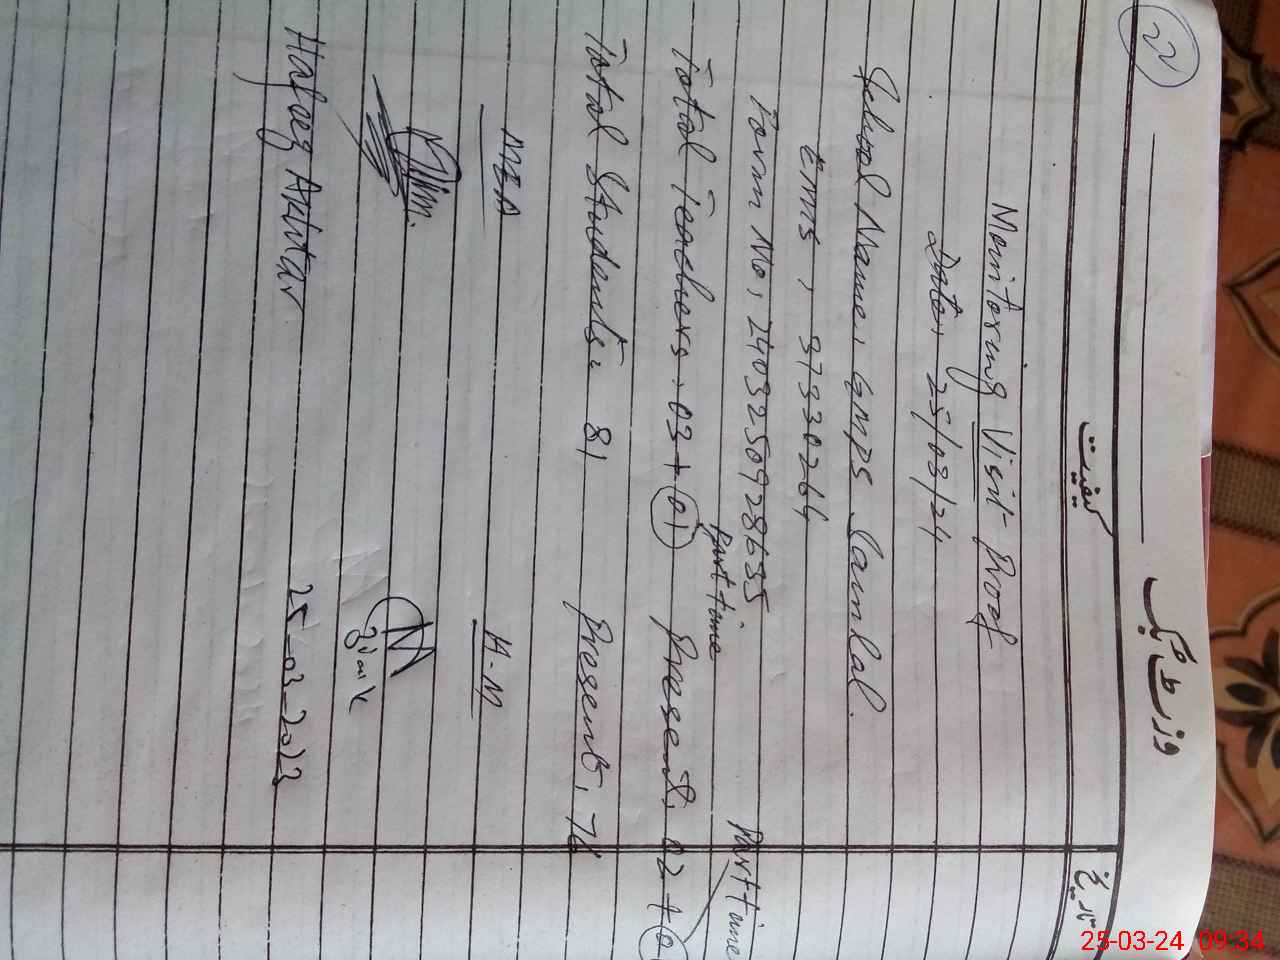 22
وزٹ بک
کیفیت
تاریخ
Monitoring Visit Proof
Date, 25/03/24
School Name, GMPS Sainlal.
EMIS, 37330264
Form No, 240325092865
Part time
Part time
Total Teachers, 03 + 01 Present, 02 + 0
Total Students: 81 Present, 76
MEA H.M
Hafaez Akhtar 25-03-2023
25-03-24 09:34